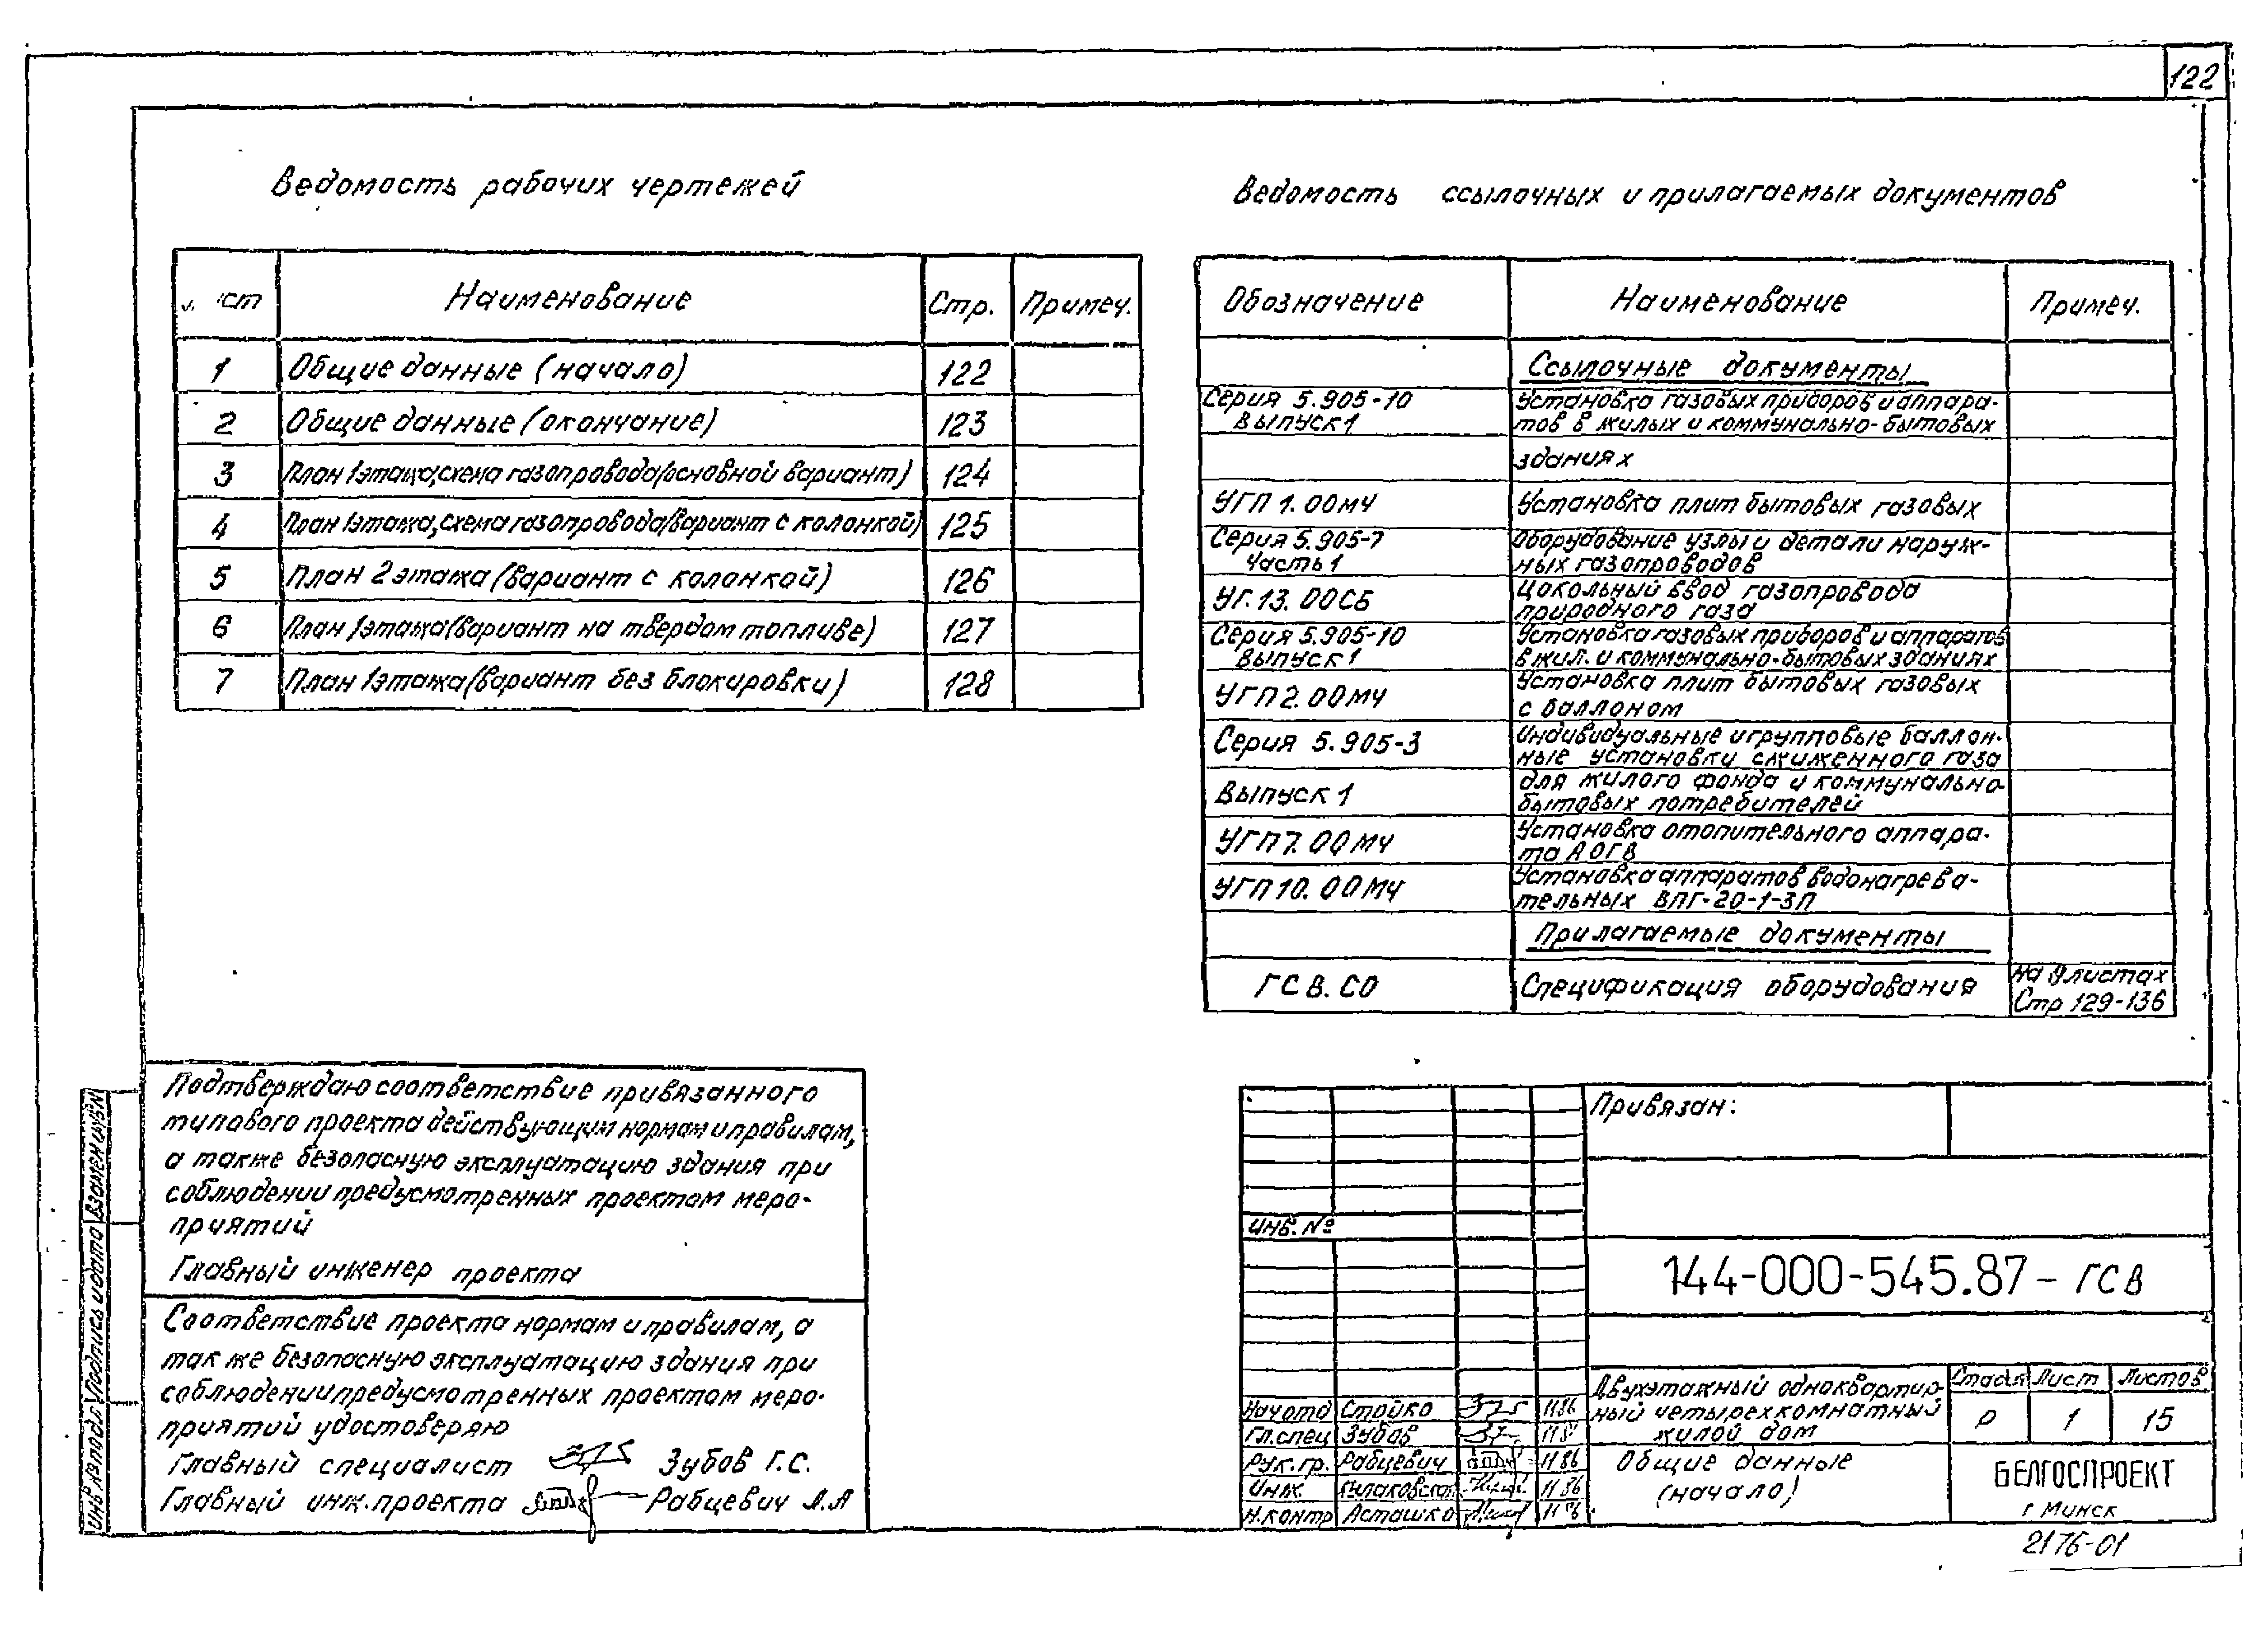 122
Ведомость рабочих чертежей
Наименование Стр. Примеч.
1 Общие данные (начало) 122
2 Общие данные (окончание) 123
3 План 1этажа, схема газопровода (основной вариант) 124
4 План 1этажа, схема газопровода (вариант с колонкой) 125
5 План 2 этажа (вариант с колонкой) 126
6 План 1этажа (вариант на твердом топливе) 127
7 План 1этажа (вариант без блокировки) 128
Ведомость ссылочных и прилагаемых документов
Обозначение Наименование Примеч.
Ссылочные документы
Серия 5.905-10 Установка газовых приборов и аппара-
Выпуск 1 тов в жилых и коммунально-бытовых
зданиях
УГП 1.00МЧ Установка плит бытовых газовых
Серия 5.905-7 Оборудование узлы и детали наруж-
Часть 1 ных газопроводов
УГ.13.00СБ Цокольный ввод газопровода
природного газа
Серия 5.905-10 Установка газовых приборов и аппаратов
Выпуск 1 в жил. и коммунально-бытовых зданиях
УГП2.00МЧ Установка плит бытовых газовых
с баллоном
Серия 5.905-3 Индивидуальные и групповые баллон-
ные установки сжиженного газа
Выпуск 1 для жилого фонда и коммунально-
бытовых потребителей
УГП7.00МЧ Установка отопительного аппара-
та АОГВ
УГП10.00МЧ Установка аппаратов водонагрева-
тельных ВПГ-20-1-3П
Прилагаемые документы
ГСВ.СО Спецификация оборудования на 9 листах
Стр 129-136
Подтверждаю соответствие привязанного
типового проекта действующим нормам и правилам,
а также безопасную эксплуатацию здания при
соблюдении предусмотренных проектом меро-
приятий
Главный инженер проекта
Соответствие проекта нормам и правилам, а
также безопасную эксплуатацию здания при
соблюдении предусмотренных проектом меро-
приятий удостоверяю
Главный специалист Зубов Г.С.
Главный инж.проекта Рабцевич Л.А
Инв № подл Подпись и дата Взамен инв№
Привязан:
Инв. №
144-000-545.87-ГСВ
Нач отд Стойко 11 86
Гл.спец Зубов
Рук.гр. Рабцевич 11 86
Инж 11 86
Н.контр Асташко
Двухэтажный одноквартир-
ный четырехкомнатный
жилой дом
Стадия Лист Листов
Р 1 15
Общие данные
(начало)
БЕЛГОСПРОЕКТ
г Минск
2176-01